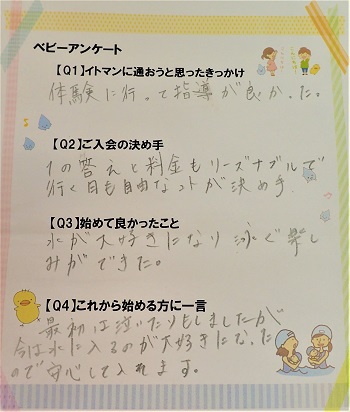 ベビーアンケート
【Q1】イトマンに通おうと思ったきっかけ
体験に行って指導が良かった。
【Q2】ご入会の決め手
1の答えと料金もリーズナブルで
行く日も自由なトコが決め手
【Q3】始めて良かったこと
水が大好きになり泳ぐ楽し
みができた。
【Q4】これから始める方に一言
最初は泣いたりもしましたが
今は水に入るのが大好きになった
ので安心して入れます。